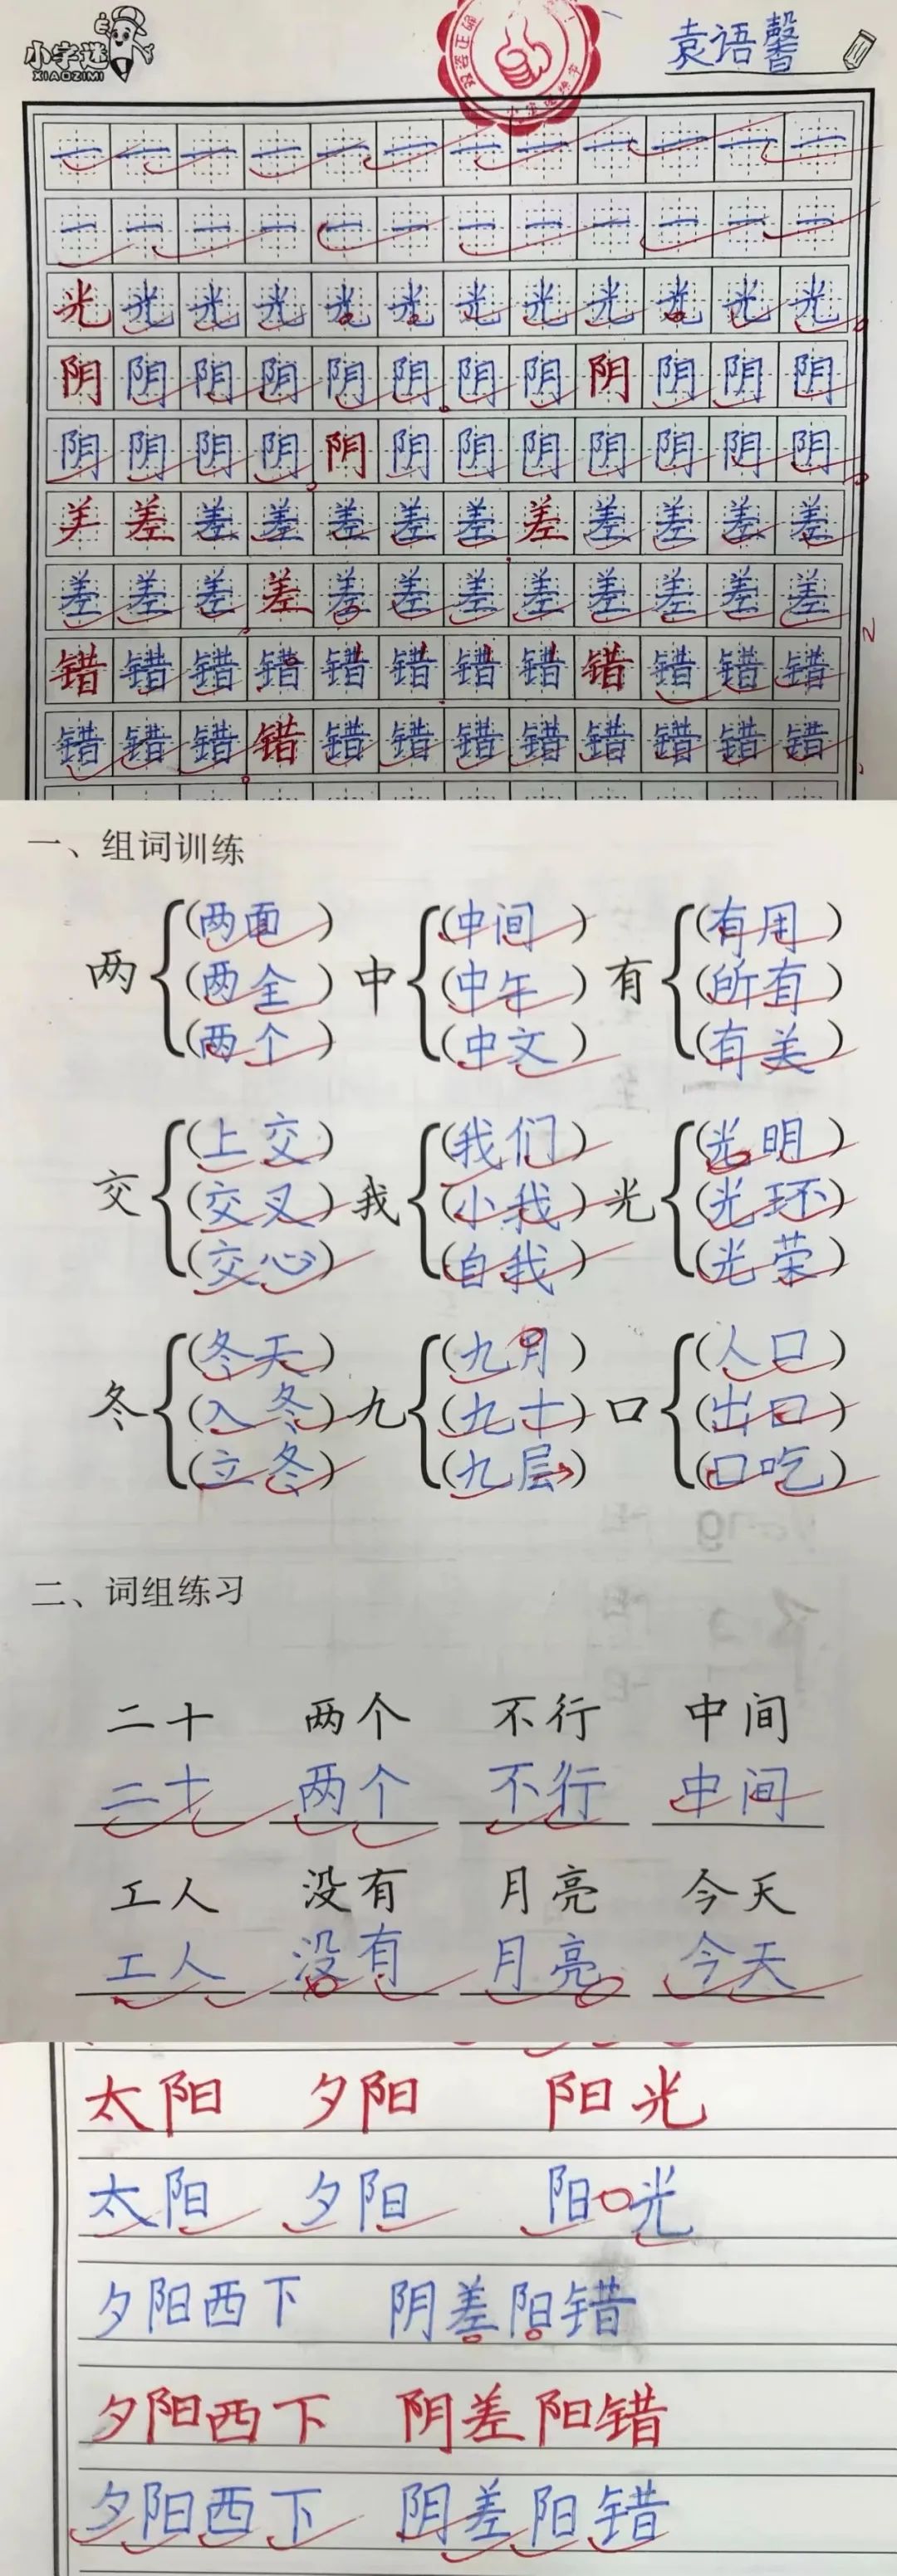 小字迷 袁语馨
XIAOZIMI
一 一 一 一 一 一 一 一 一 一 一 一
一 一 一 一 一 一 一 一 一 一 一 一
光 光 光 光 光 光 光 光 光 光 光 光
阴 阴 阴 阴 阴 阴 阴 阴 阴 阴 阴 阴
阴 阴 阴 阴 阴 阴 阴 阴 阴 阴 阴 阴
差 差 差 差 差 差 差 差 差 差 差
差 差 差 差 差 差 差 差 差 差 差 差
错 错 错 错 错 错 错 错 错 错 错 错
错 错 错 错 错 错 错 错 错 错 错 错
一、组词训练
两 (两面) (两全) (两个)
中 (中间) (中午) (中文)
有 (有用) (所有) (有美)
交 (上交) (交叉) (交心)
我 (我们) (小我) (自我)
光 (光明) (光环) (光荣)
冬 (冬天) (入冬) (立冬)
九 (九月) (九十) (九层)
口 (人口) (出口) (口吃)
二、词组练习
二十 两个 不行 中间
二十 两个 不行 中间
工人 没有 月亮 今天
工人 没有 月亮 今天
太阳 夕阳 阳光
太阳 夕阳 阳光
夕阳西下 阴差阳错
夕阳西下 阴差阳错
夕阳西下 阴差阳错